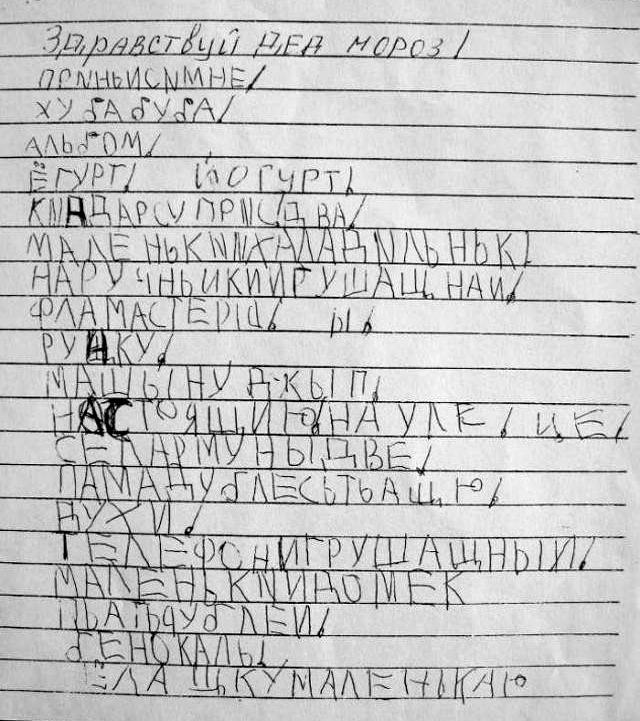 ЗДРАВСТВУЙ ДЕД МОРОЗ!
ПРИНЬИСИМНЕ!
ХУБАБУБА!
АЛЬБОМ!
ГУРТ! ЙОГУРТ!
КИНДАРСУПРИСДВА!
МАЛЕНЬКИИХАЛАДИЛЬНЬК!
НАРУЧНЬИКИИГРУШАЩНАИ!
ФЛАМАСТЕРЫ! Ы!
РУЧКУ!
МАШЫНУ ДЖЫП!
НАСТОЯЩИЮ!НА УЛЕ! ЦЕ!
СЕЛАРМУНЫДВЕ!
ПАМАДУБЛЕСЬТЬАЩЮ!
ДУХИ!
ТЕЛЕФОНИГРУШАЩНЫЙ!
МАЛЕНЬКИИДОМЕК
ПЬАТЬРУБЛЕИ!
БЕНОКАЛЬ!
ЕЛАЩКУМАЛЕНЬКАЮ